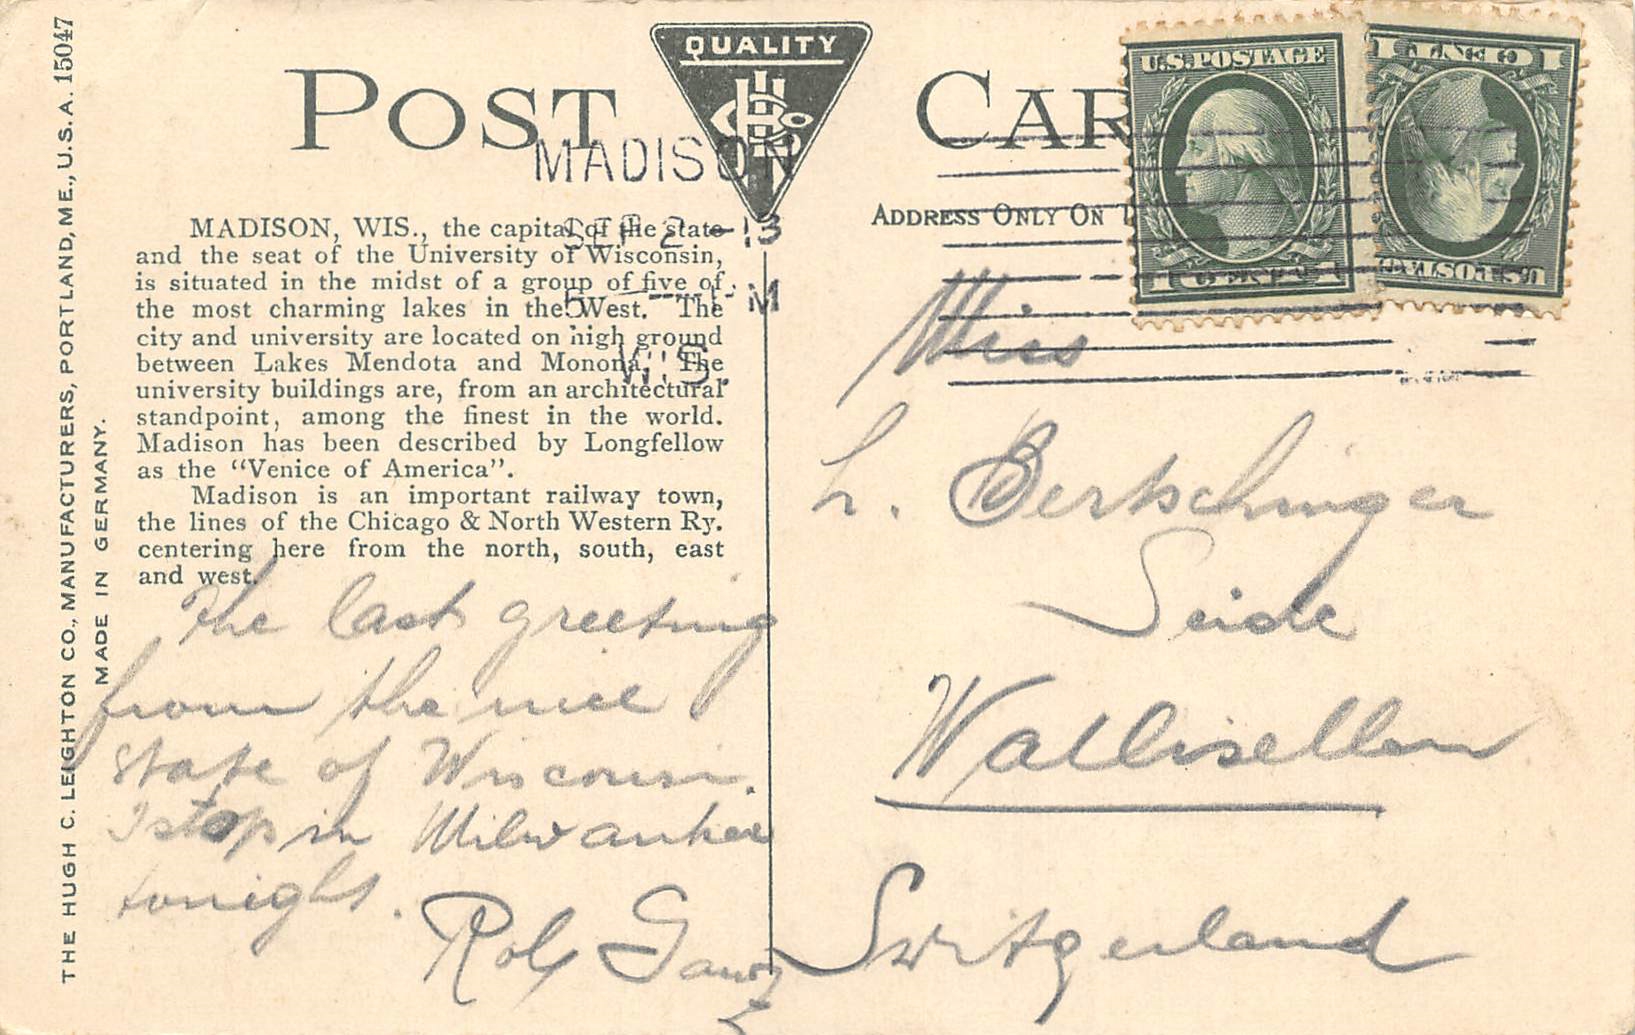 THE HUGH C. LEIGHTON CO., MANUFACTURERS, PORTLAND, ME., U.S.A. 15047
MADE IN GERMANY.
POST
QUALITY
CAR
MADISON
SEP 2 -13
5 - M
WIS.
ADDRESS ONLY ON
U.S. POSTAGE
1 CENT 1
U.S. POSTAGE
1 CENT 1
MADISON, WIS., the capital of the state
and the seat of the University of Wisconsin,
is situated in the midst of a group of five of
the most charming lakes in the West. The
city and university are located on high ground
between Lakes Mendota and Monona. The
university buildings are, from an architectural
standpoint, among the finest in the world.
Madison has been described by Longfellow
as the "Venice of America".
Madison is an important railway town,
the lines of the Chicago & North Western Ry.
centering here from the north, south, east
and west.
The last greeting
from the nice
state of Wisconsin.
I stop in Milwaukee
tonight.
Rob
Miss
L. Bertschinger
Seide
Wallisellen
Switzerland